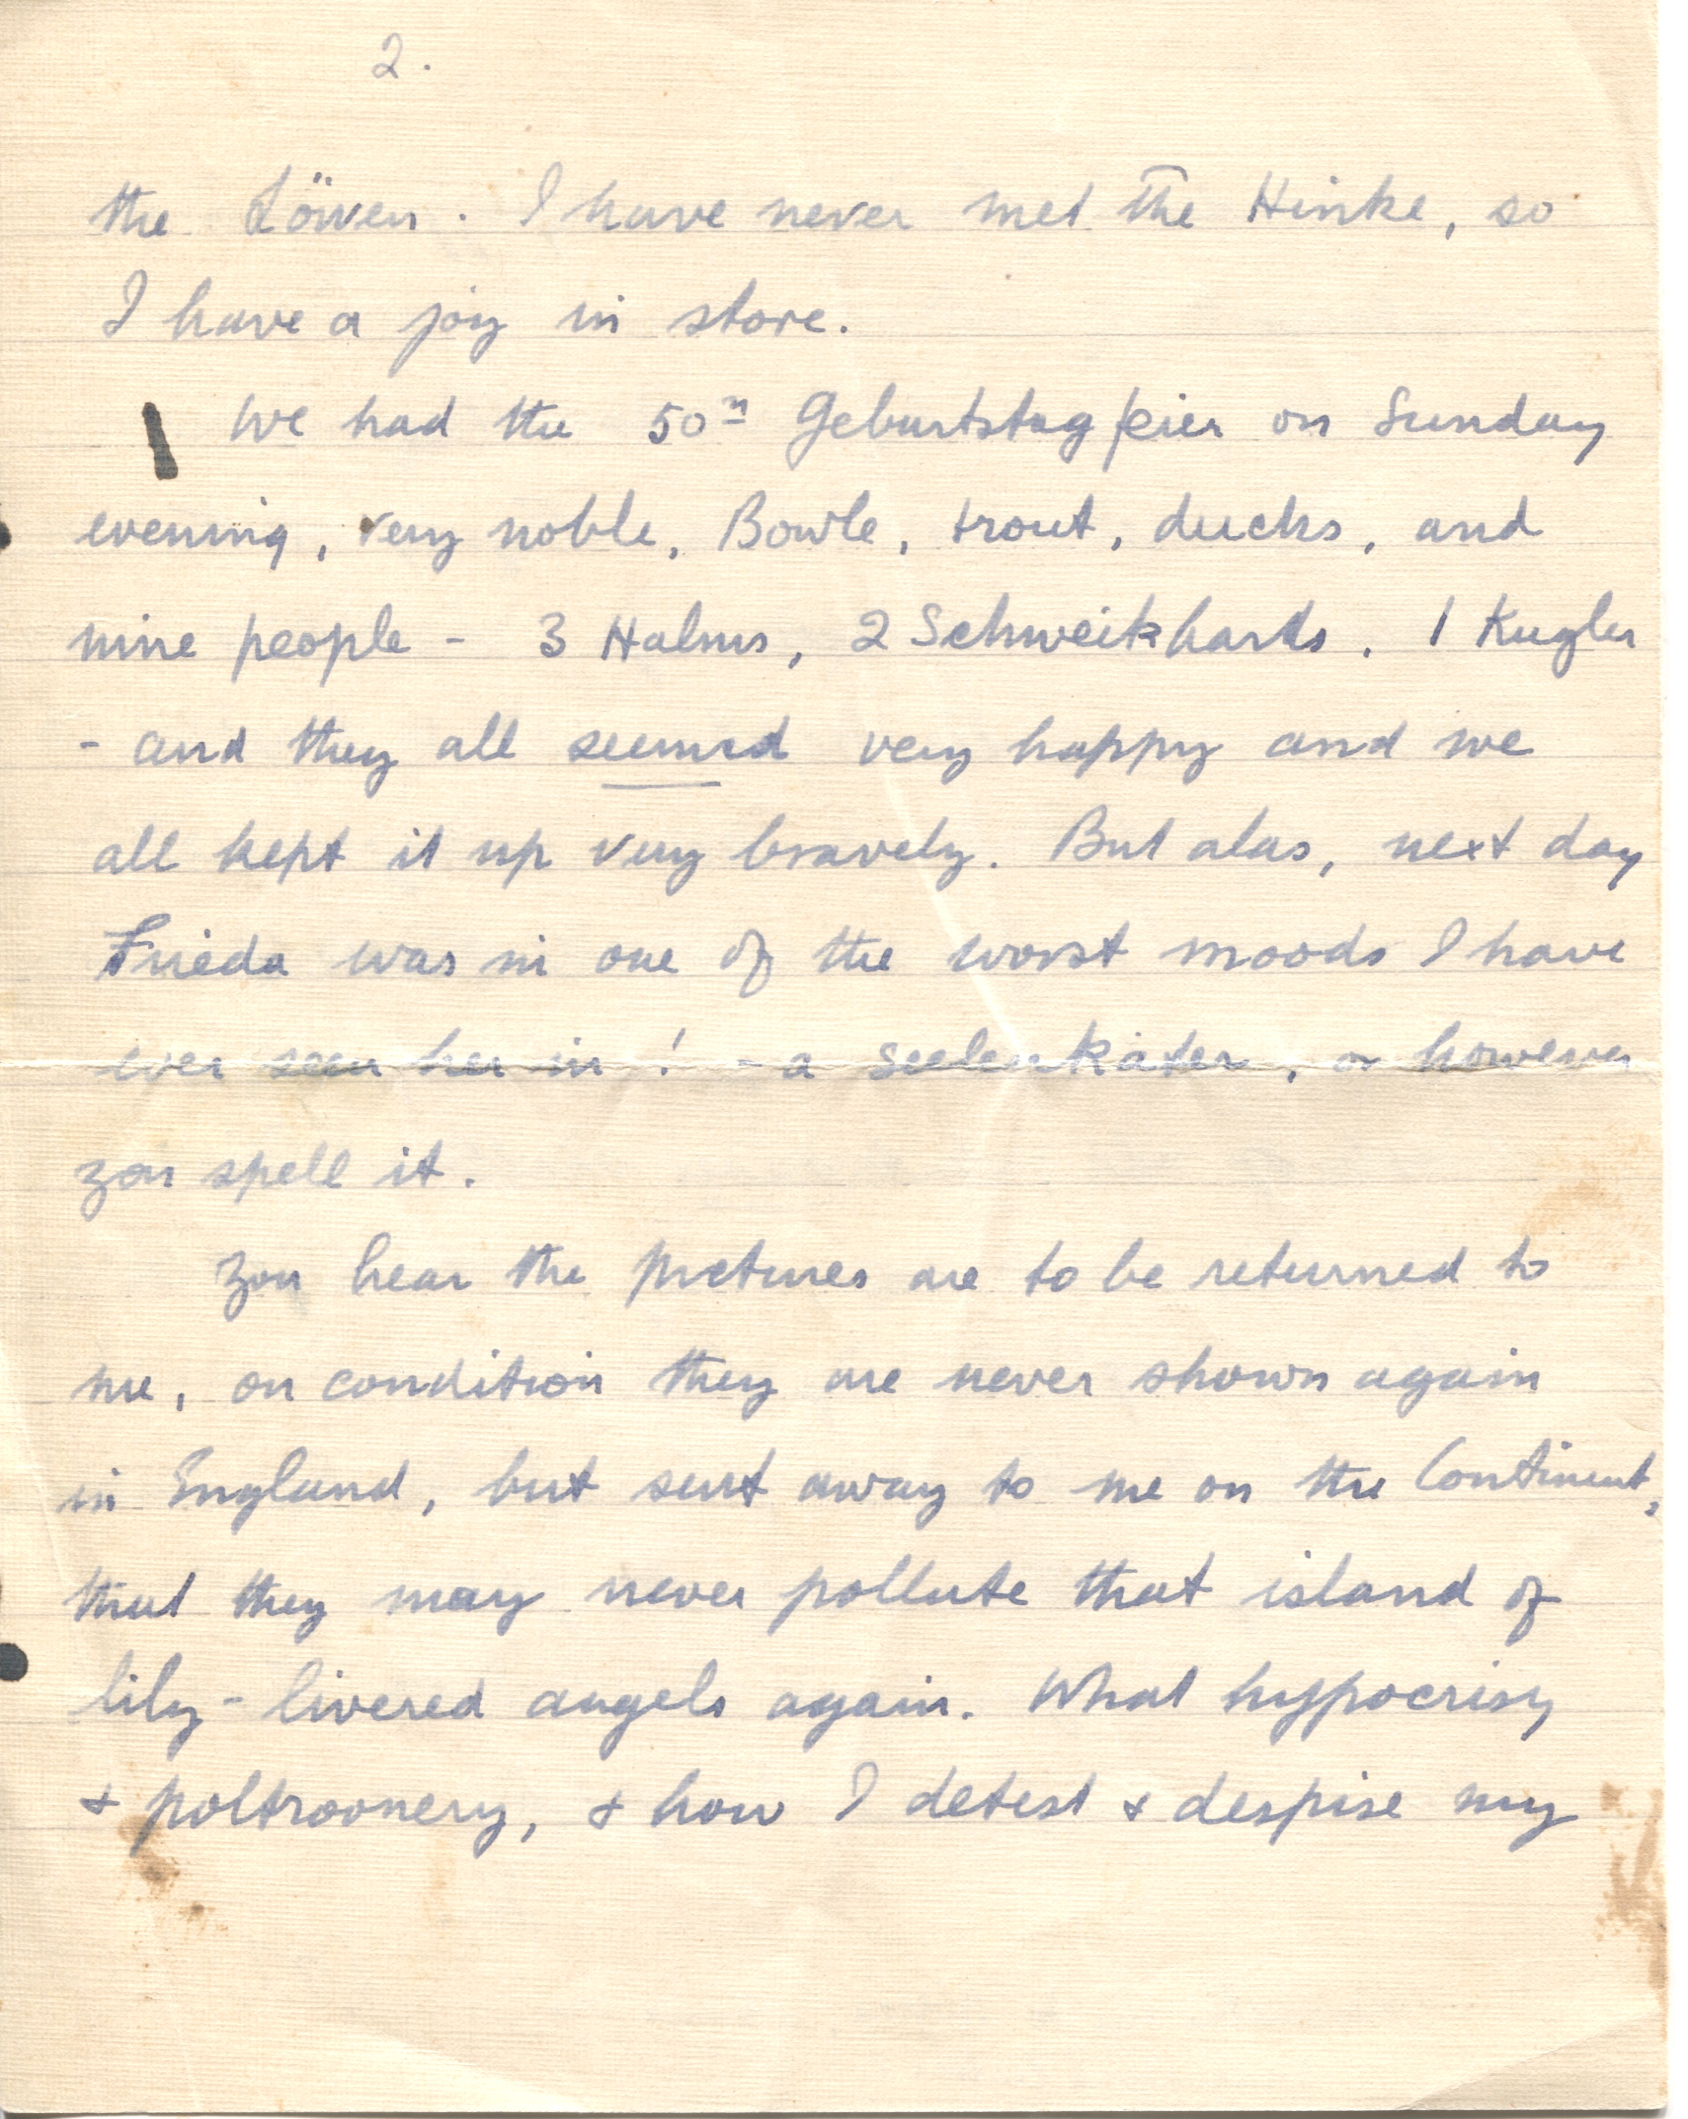 2.
the Löwen. I have never met the Hinke, so
I have a joy in store.
We had the 50th Geburtstagfeier on Sunday
evening, very noble, Bowle, trout, ducks, and
nine people - 3 Halms, 2 Schweikharts, 1 Kugler
- and they all seemed very happy and we
all kept it up very bravely. But alas, next day
Frieda was in one of the worst moods I have
ever seen her in! - a Seelenkater, or however
you spell it.
You hear the pictures are to be returned to
me, on condition they are never shown again
in England, but sent away to me on the Continent,
that they may never pollute that island of
lily-livered angels again. What hypocrisy
& poltroonery, & how I detest & despise my